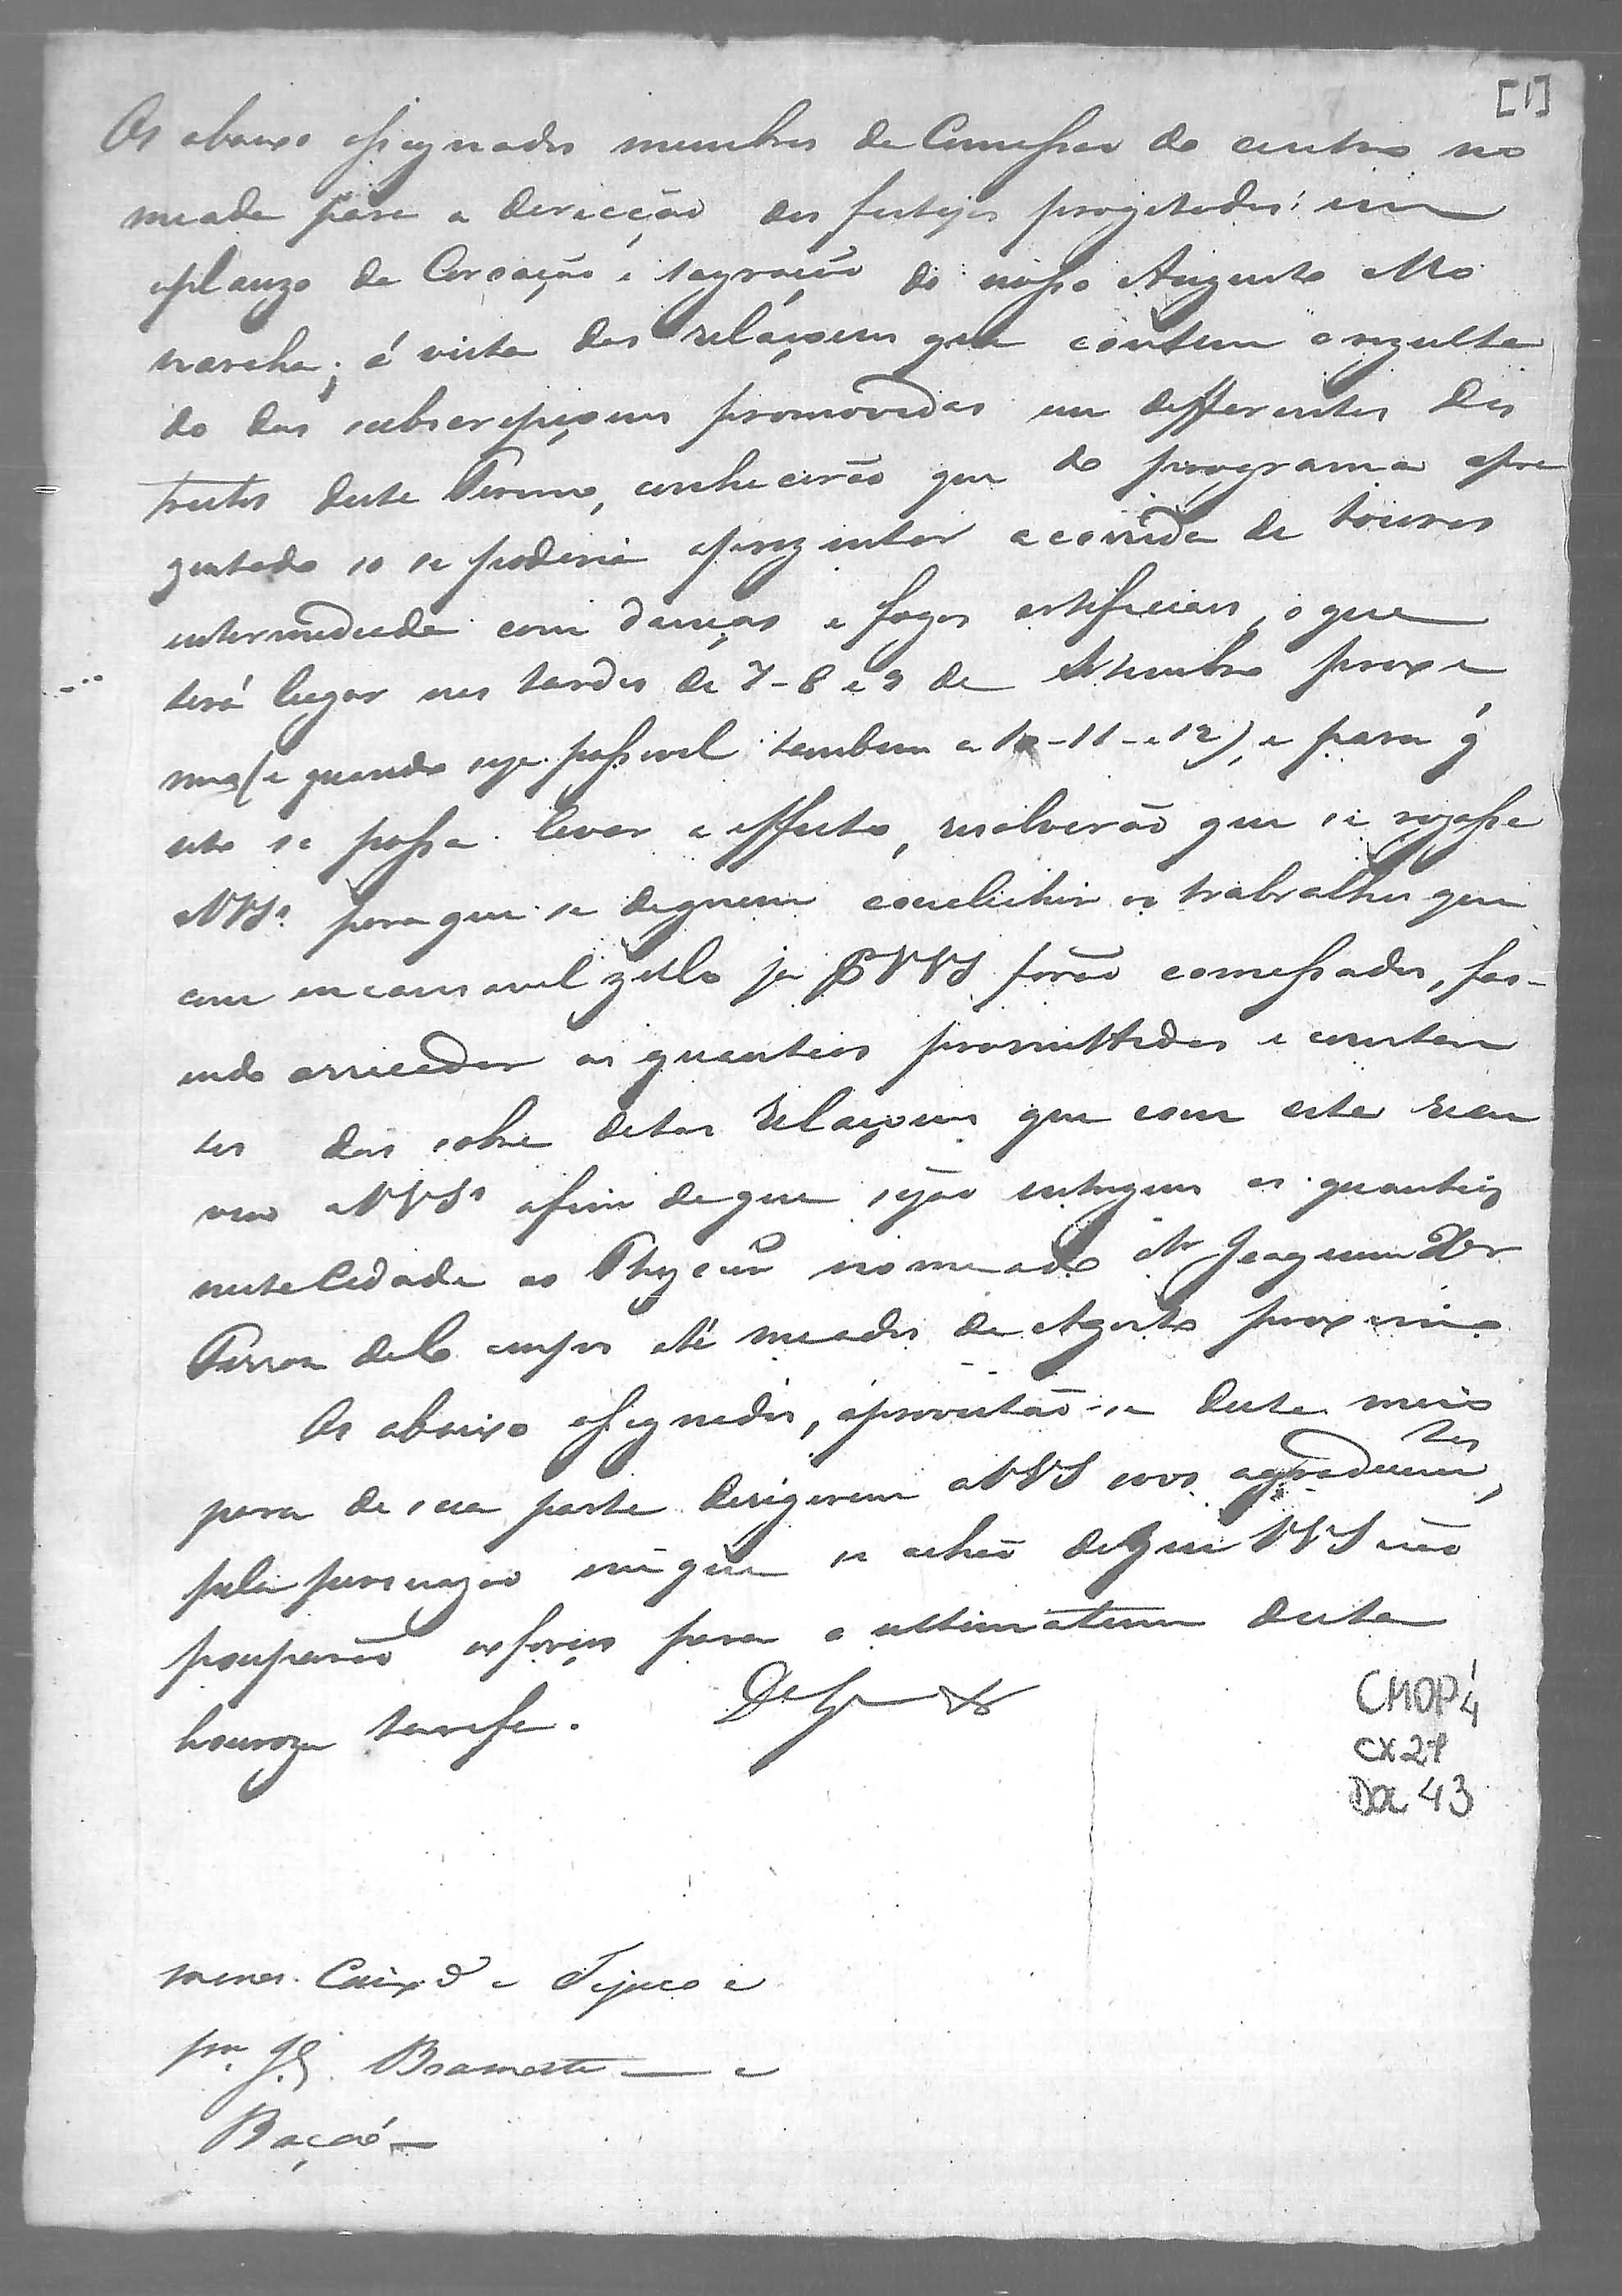 [1]
Os abaixo assignados membros da Comessão do centro no
meada para a derecção dos festejos progetados: em
aplauzo da Coroação e sagração do nosso Augusto Mo
narcha; á vista das relaçoens que contem o rezulta
do das subscripçoens promovidas em defferentes Des
trictos deste Termo, conhecerão que do programa apre
zentado so se poderia aprezentar a corrida de touros
intermediada com danças e fogos artificiais, o que
terá lugar nas tardes de 7-8 e 9 de Setembro proxi
mo (e quando seja possivel tambem a 10-11-e 12), e para q̃
isto se possa levar a effeito, resolverão que se rogasse
a VVSs. para que se dignem concluhir os trabralhos que
com incansavel zello ja p VVS forão comessados, fas-
endo arrecadar as quantias promettidas e constan
tes das sobre ditas relaçoens que com esta rem
 a VVSs afim de que sejão entregues as quantias
nesta Cidade ao Thezouro nomeado Joaquim
 de até meados de Agosto proximo
Os abaixo assignados, aproveitão-se deste meio
para de sua parte derigirem a VVS seos agradecimen
tos
pela persuazão em que se achão de que VVS não
pouparão esforços para o ultimatum desta
honroza tarefa. De G
CMOP
cx 21
Doc 43
menos Caixo e Tejuco e
pr. Bramonte — e
Bação —